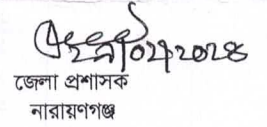 জেলা প্রশাসক
নারায়ণগঞ্জ